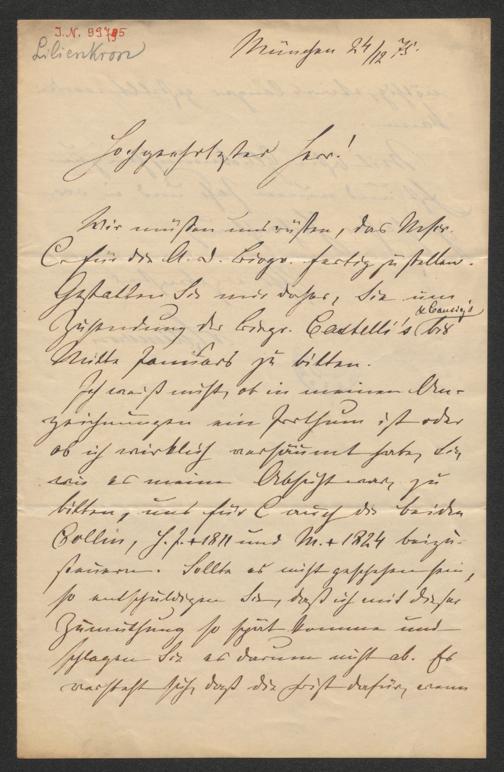 J.N. 99795
Lilienkron
München 24/12 75.
Hochgeehrtester Herr!
Wir müssen uns rüsten, das Mscr.
C. für die A. D. Biogr. fertig zu stellen.
Gestatten Sie mir daher, Sie um
& Canzig's
Zusendung der Biogr. Castelli's bis
Mitte Januars zu bitten.
Ich weiß nicht, ob in meinen Auf-
zeichnungen ein Irrthum ist oder
ob ich wirklich versäumt habe, Sie,
wie es meine Absicht war, zu
bitten, uns für C auch die beiden
Collin, H. J. + 1811 und M. + 1824 beizu-
steuern. Sollte es nicht geschehen sein,
so entschuldigen Sie, daß ich mit dieser
Zumuthung so spät komme und
schlagen Sie es darum nicht ab. Es
versteht sich, daß die Frist dafür, wenn